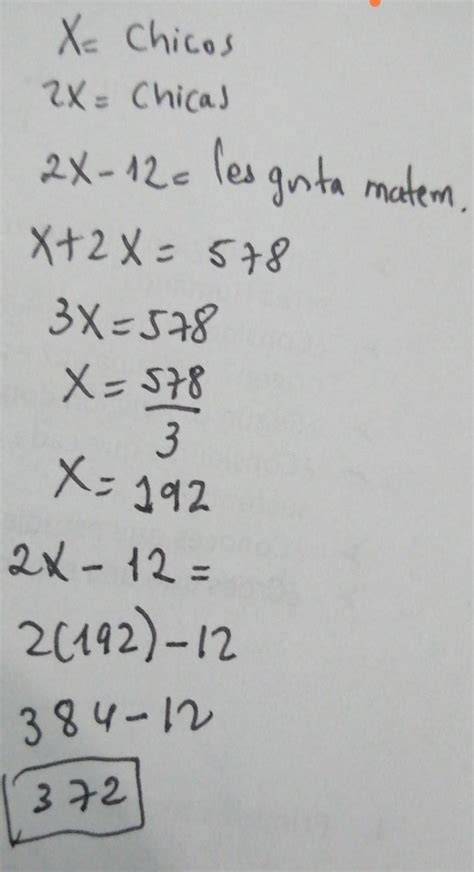 X= Chicos
2X= Chicas
2X-12= les gusta matem.
X+2X= 578
3X=578
X=578/3
X=192
2X-12=
2(192)-12
384-12
372